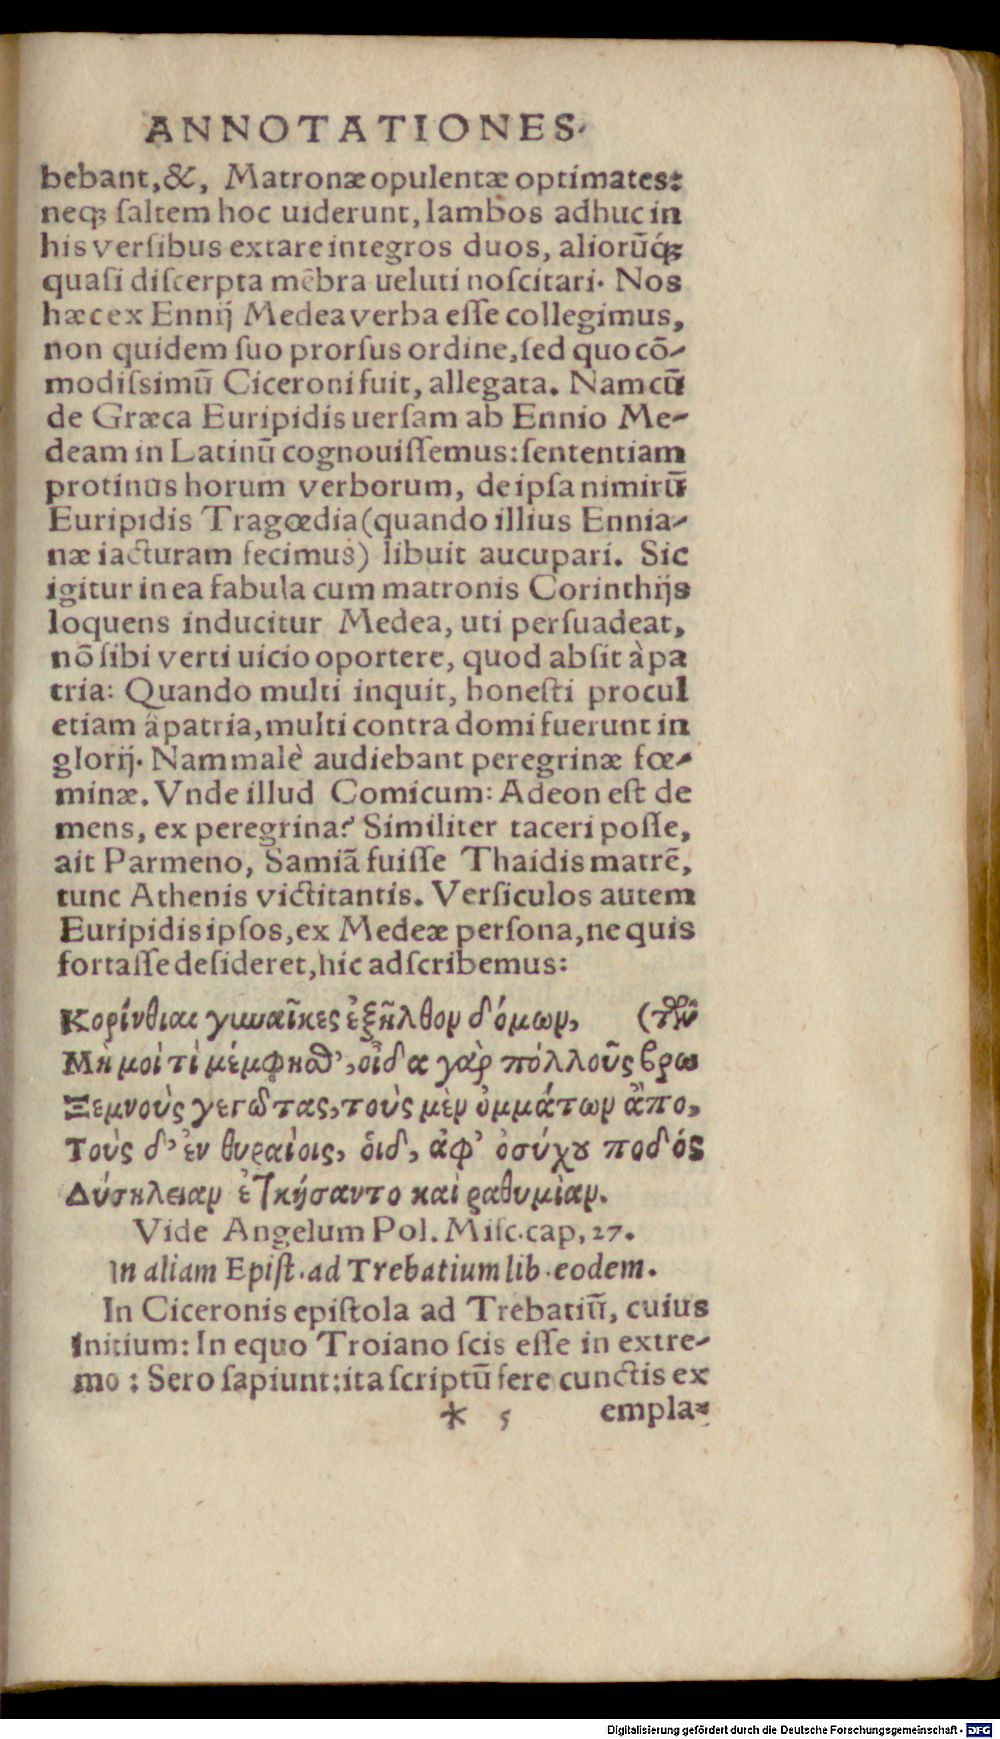 ANNOTATIONES.
bebant, &, Matronæ opulentæ optimates:
neq; saltem hoc uiderunt, Iambos adhuc in
his versibus extare integros duos, aliorũq́;
quasi discerpta mẽbra ueluti noscitari. Nos
hæc ex Ennij Medea verba esse collegimus,
non quidem suo prorsus ordine, sed quo cõ-
modissimũ Ciceroni fuit, allegata. Nam cũ
de Græca Euripidis uersam ab Ennio Me-
deam in Latinũ cognouissemus: sententiam
protinus horum verborum, de ipsa nimirũ
Euripidis Tragœdia (quando illius Ennia-
næ iacturam fecimus) libuit aucupari. Sic
igitur in ea fabula cum matronis Corinthijs
loquens inducitur Medea, uti persuadeat,
nõ sibi verti uicio oportere, quod absit à pa
tria: Quando multi inquit, honesti procul
etiam â patria, multi contra domi fuerunt in
glorij. Nam malè audiebant peregrinæ fœ-
minæ. Vnde illud Comicum: Adeon est de
mens, ex peregrina? Similiter taceri posse,
ait Parmeno, Samiã fuisse Thaidis matrẽ,
tunc Athenis victitantis. Versiculos autem
Euripidis ipsos, ex Medeæ persona, ne quis
fortasse desideret, hic adscribemus:
Κορίνθιαι γυναῖκες ἐξῆλθον δόμων, (τῶν
Μή μοί τὶ μέμφηθ', οἶδα γὰρ πόλλοῦς βρω
Ξεμνοὺς γεγῶτας, τοὺς μὲν ὀμμάτων ἄπο,
Τοὺς δ' ἐν θυραίοις, ὁιδ, ἀφ' ὁσύχου ποδός
Δύσκλειαν ἐτκήσαντο καὶ ραθυμίαν.
Vide Angelum Pol. Misc. cap, 27.
In aliam Epist. ad Trebatium lib. eodem.
In Ciceronis epistola ad Trebatiũ, cuius
Initium: In equo Troiano scis esse in extre-
mo: Sero sapiunt: ita scriptũ fere cunctis ex
* 5 empla-
Digitalisierung gefördert durch die Deutsche Forschungsgemeinschaft - DFG